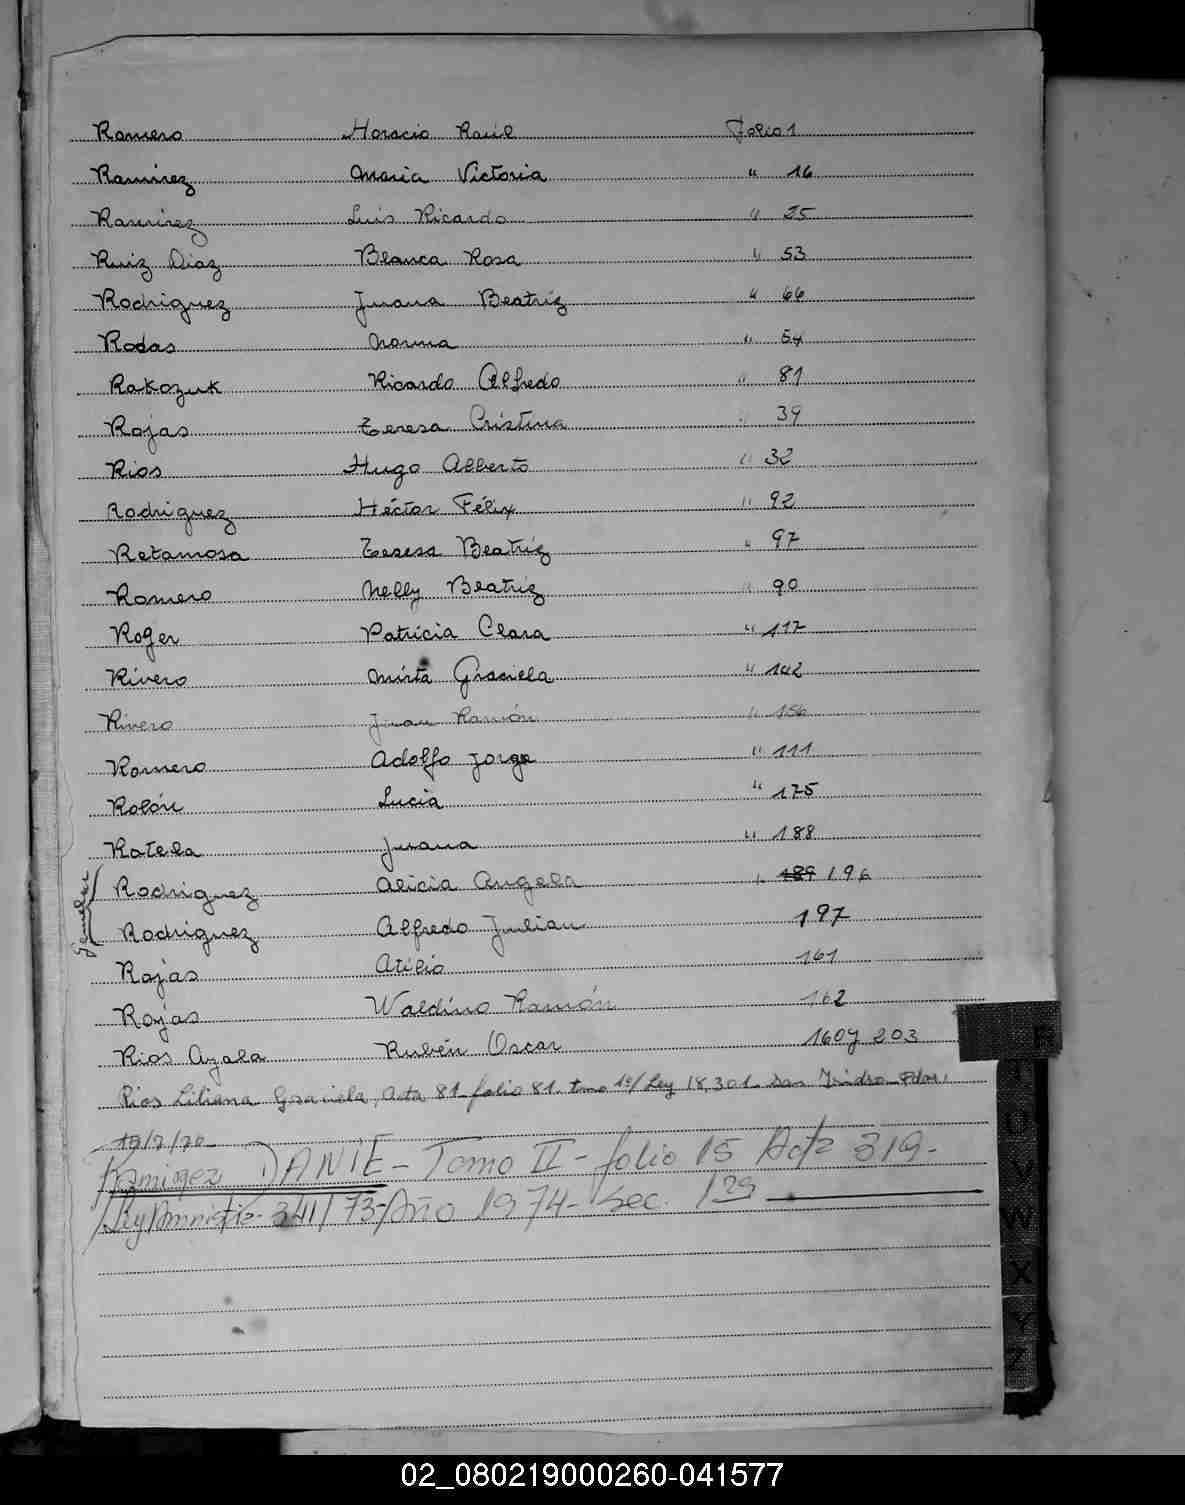 Romero Horacio Raúl Folio 1
Ramirez Maria Victoria " 16
Ramirez Luis Ricardo " 25
Ruiz Diaz Blanca Rosa " 53
Rodriguez Juana Beatriz " 66
Rodas Norma " 54
Rakozuk Ricardo Alfredo " 81
Rojas Teresa Cristina " 39
Rios Hugo Alberto " 32
Rodriguez Héctor Félix " 92
Retamosa Teresa Beatriz " 97
Romero Nelly Beatriz " 90
Roger Patricia Clara " 117
Rivero Mirta Graciela " 142
Rivero Juan Ramón " 156
Romero Adolfo Jorge " 111
Rolón Lucia " 175
Ratela Juana " 188
Rodriguez Alicia Angela " 189 196
Rodriguez Alfredo Julian 197
Rojas Atilio 161
Rojas Waldino Ramón 162
Rios Ayala Rubén Oscar 160 y 203
Rios Liliana Graciela, Acta 81 folio 81 tmo 1º/ Ley 18,301 San Isidro
Ramirez DANTE - Tomo II - folio 15 Acta 319-
Ley Amnistia 341/73- Año 1974- Sec. 1ra
R
U
V
W
X
Y
Z
02_080219000260-041577